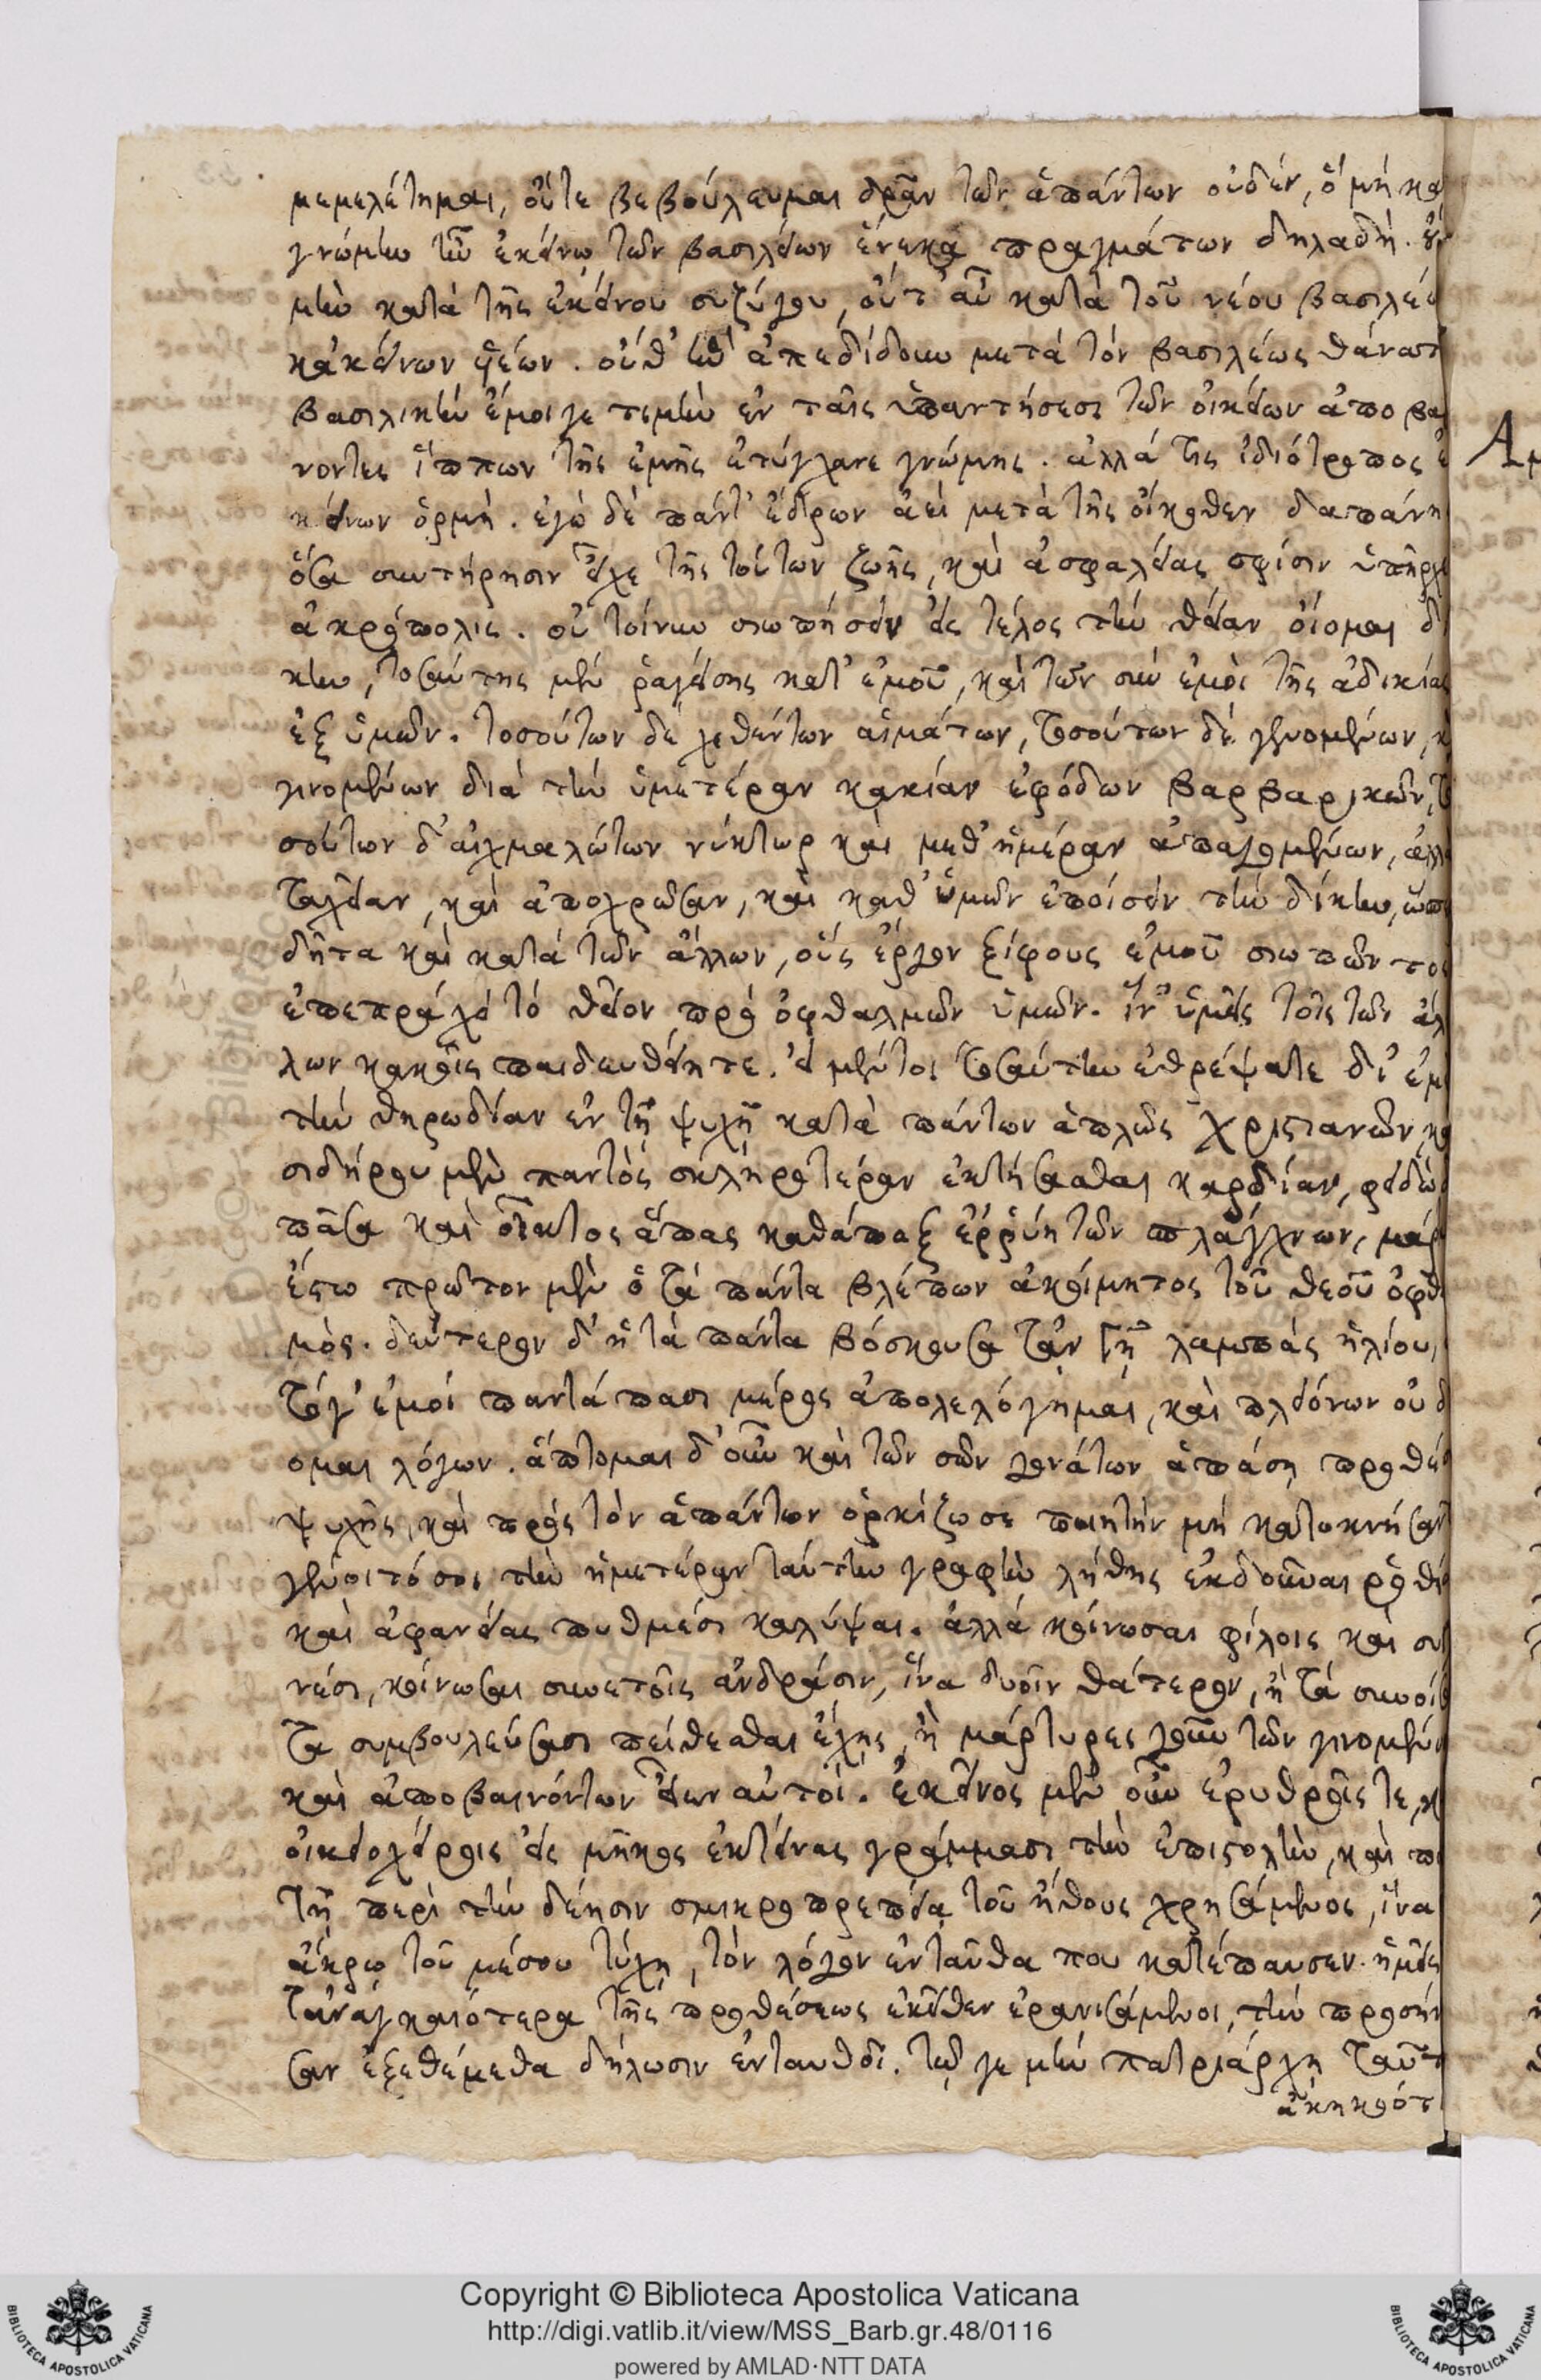 μεμελέτημαι, οὔτε βεβούλευμαι δρᾶν τῶν ἁπάντων οὐδέν, ὃ μὴ κα
γνώμην τῶ ἐκείνω τῶν βασιλείων ἕνεκα πραγμάτων δηλαδή.
μὴν κατὰ τῆς ἐκείνου συζύγου, οὔτ' αὖ κατὰ τοῦ νέου βασιλέ
κἀκείνων υἱέων. οὔθ' ἣν ἀπεδίδουν μετὰ τὸν βασιλέως θάνατ
βασιλικὴν ἔμοιγε τιμὴν ἐν ταῖς ὑπαντήσεσι τῶν οἰκείων ἀποβαί
νοντες ἵππων τῆς ἐμῆς ἐτύγχανε γνώμης. ἀλλά τις ἰδιότροπος ἐ
κείνων ὁρμή. ἐγὼ δὲ πάντ' ἔδρων ἀεὶ μετὰ τῆς οἴκοθεν δαπάνη
ὅσα συντήρησιν εἶχε τῆς τούτων ζωῆς, καὶ ἀσφαλείας σφίσιν ὑπῆρχ
ἀκρόπολις. οὐ τοίνυν σιωπήσειν εἰς τέλος τὴν θείαν οἴομαι δί
κην, τοσαύτης μὲν ῥαγείσης κατ' ἐμοῦ, καὶ τῶν σὺν ἐμοὶ τῆς ἀδικίας
ἐξ ὑμῶν. τοσούτων δὲ χεθέντων αἱμάτων, τοσούτων δὲ γενομένων, κ
γινομένων διὰ τὴν ὑμετέραν κακίαν ἐφόδων βαρβαρικῶν, το
σούτων δ' αἰχμαλώτων νύκτωρ καὶ μεθ' ἡμέραν ἀπαγομένων, ἀλλὰ
τελείαν, καὶ ἀποχρῶσαν, καὶ καθ' ὑμῶν ἐποίσειν τὴν δίκην, ὥσπ
δῆτα καὶ κατὰ τῶν ἄλλων, οὓς ἔργον ξίφους ἐμοῦ σιωπῶντο
ἐπεπράχει τὸ θεῖον πρὸ ὀφθαλμῶν ὑμῶν. ἵν' ὑμεῖς τοῖς τῶν ἄλ
λων κακοῖς παιδευθείητε. εἰ μέντοι τοσαύτην ἐθρέψατε δι' ἐμὲ
τὴν θηριωδίαν ἐν τῇ ψυχῇ κατὰ πάντων ἁπλῶς χριστιανῶν, κα
σιδήρου μὲν παντὸς σκληροτέραν ἐκτήσασθαι καρδίαν, φειδὼ δὲ
πᾶσα καὶ οἶκτος ἅπας καθάπαξ ἐρρύη τῶν σπλάγχνων, μάρ
ἔστω πρῶτον μὲν ὁ τὰ πάντα βλέπων ἀκοίμητος τοῦ θεοῦ ὀφθαλ
μός. δεύτερον δ' ἡ τὰ πάντα βόσκουσα τἀν γῇ λαμπὰς ἡλίου,
τόγ' ἐμοὶ παντάπασι μέρος ἀπολελόγημαι, καὶ πλειόνων οὐ δ
ομαι λόγων. ἅπτομαι δ' οὖν καὶ τῶν σῶν γονάτων ἁπάσῃ προθέ
ψυχῆς, καὶ πρὸς τὸν ἁπάντων ὁρκίζω σε ποιητὴν μὴ κατοκνήσαι
γένοιτό σοι τὴν ἡμετέραν ταύτην γραφὴν λήθης ἐκδοῦναι ῥοθί
καὶ ἀφανείας πυθμέσι καλύψαι. ἀλλὰ κοίνωσαι φίλοις καὶ συγ
νέσι, κοίνωσαι συνετοῖς ἀνδράσιν, ἵνα δυοῖν θάτερον, ἢ τὰ συνοί
τα συμβουλεύσασι πείθεσθαι ἔχῃς, ἢ μάρτυρες γοῦν τῶν γινομέν
καὶ ἀποβαινόντων εἶεν αὐτοί. ἐκεῖνος μὲν οὖν ἐρυθροῖς τε, κ
οἰκειοχείροις εἰς μῆκος ἐκτείνας γράμμασι τὴν ἐπιστολὴν, καὶ πο
τῇ περὶ τὴν δέησιν σμικροπρεπείᾳ τοῦ ἤθους χρησάμενος, ἵνα
ἄκρῳ τοῦ μέσου τύχῃ, τὸν λόγον ἐνταῦθα που κατέπαυσεν. ἡμεῖς
τἀναγκαιότερα τῆς προθέσεως ἐκεῖθεν ἐρανισάμενοι, τὴν προσήκ
σαν ἐξεθέμεθα δήλωσιν ἐνταυθοῖ. τῷ γε μὴν πατριάρχῃ ταῦτ
ἀκηκοότ
Copyright © Biblioteca Apostolica Vaticana
http://digi.vatlib.it/view/MSS_Barb.gr.48/0116
powered by AMLAD·NTT DATA
BIBLIOTECA APOSTOLICA VATICANA
BIBLIOTECA APOSTOLICA VATICANA